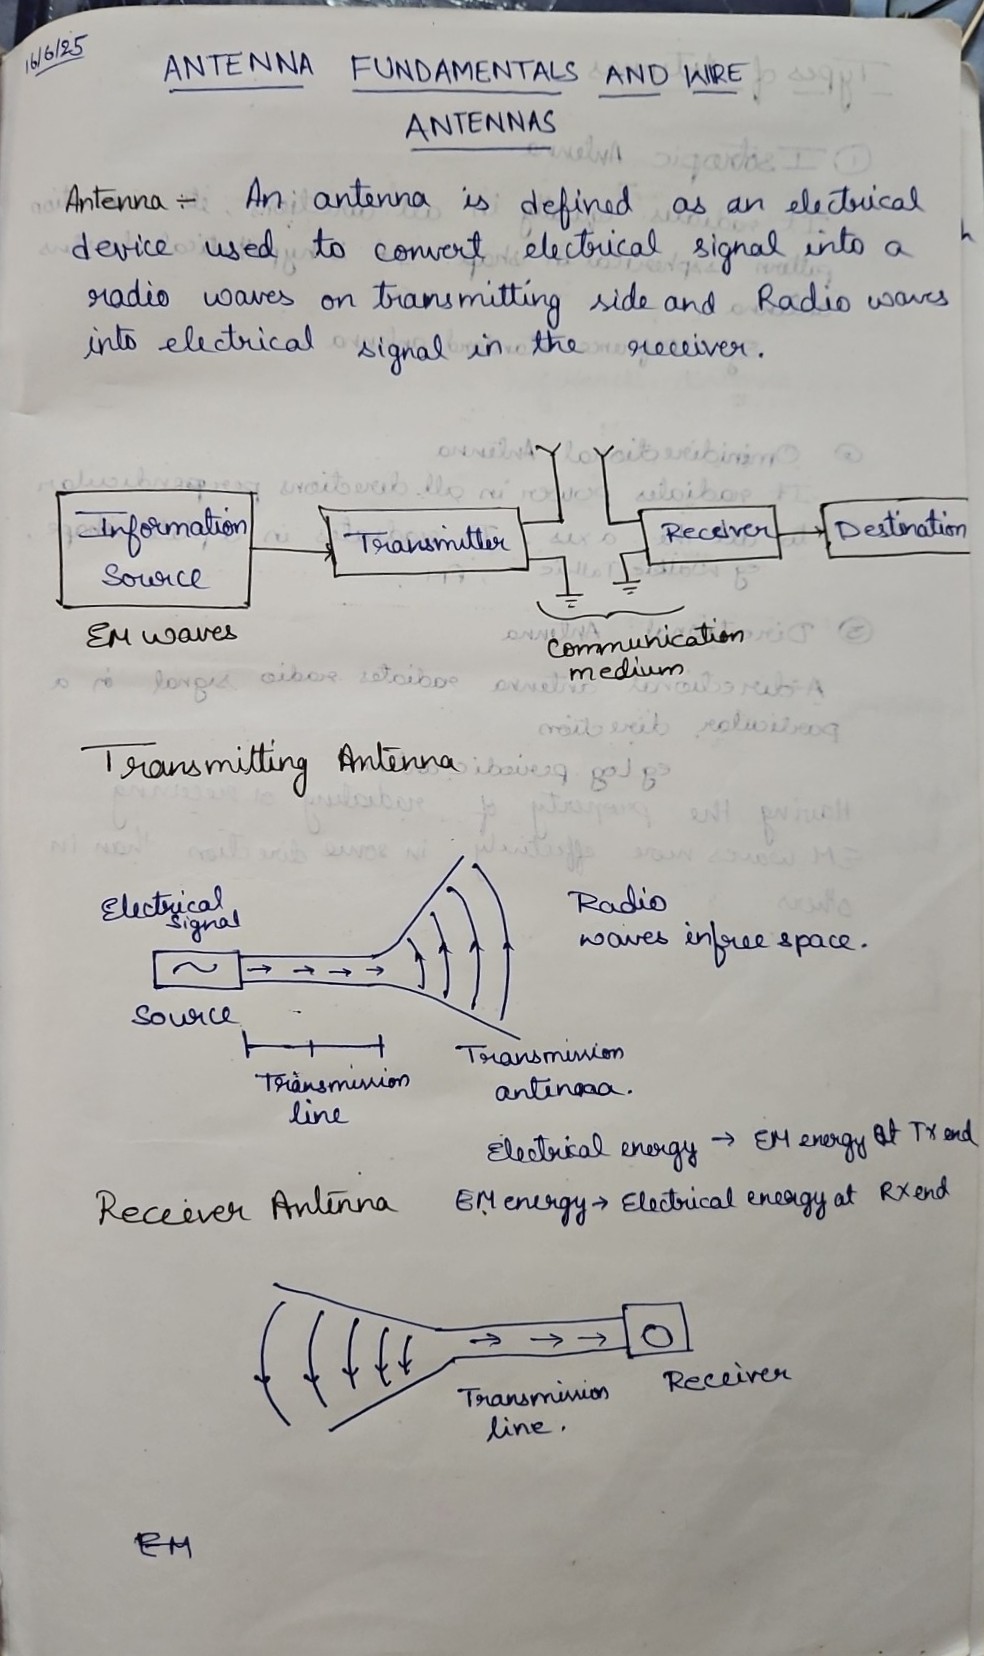 16/6/25
ANTENNA FUNDAMENTALS AND WIRE
ANTENNAS
Antenna :- An antenna is defined as an electrical
device used to convert electrical signal into a
radio waves on transmitting side and Radio waves
into electrical signal in the receiver.
Information
Source
Transmitter
Receiver
Destination
EM waves
Communication
medium
Transmitting Antenna
Electrical
signal
Radio
waves in free space.
Source
Transmission
line
Transmission
antenna.
Electrical energy → EM energy at Tx end
Receiver Antenna
EM energy → Electrical energy at Rx end
Transmission
line.
Receiver
EM